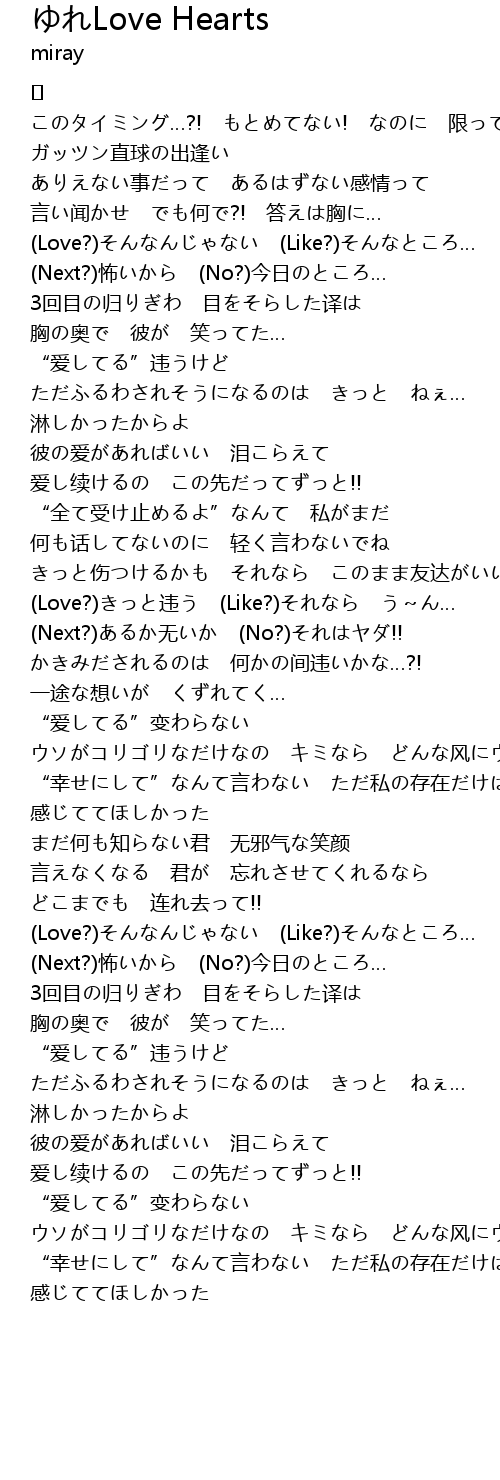 ゆれLove Hearts
miray
[]
このタイミング...?!　もとめてない!　なのに　限って
ガッツン直球の出逢い
ありえない事だって　あるはずない感情って
言い聞かせ　でも何で?!　答えは胸に...
(Love?)そんなんじゃない　(Like?)そんなところ...
(Next?)怖いから　(No?)今日のところ...
3回目の归りぎわ　目をそらした译は
胸の奥で　彼が　笑ってた...
“爱してる”违うけど
ただふるわされそうになるのは　きっと　ねぇ...
淋しかったからよ
彼の爱があればいい　泪こらえて
爱し续けるの　この先だってずっと!!
“全て受け止めるよ”なんて　私がまだ
何も话してないのに　轻く言わないでね
きっと伤つけるかも　それなら　このまま友达がいい
(Love?)きっと违う　(Like?)それなら　う～ん...
(Next?)あるか无いか　(No?)それはヤダ!!
かきみだされるのは　何かの间违いかな...?!
一途な想いが　くずれてく...
“爱してる”变わらない
ウソがコリゴリなだけなの　キミなら　どんな风に
“幸せにして”なんて言わない　ただ私の存在だけは
感じててほしかった
まだ何も知らない君　无邪气な笑颜
言えなくなる　君が　忘れさせてくれるなら
どこまでも　连れ去って!!
(Love?)そんなんじゃない　(Like?)そんなところ...
(Next?)怖いから　(No?)今日のところ...
3回目の归りぎわ　目をそらした译は
胸の奥で　彼が　笑ってた...
“爱してる”违うけど
ただふるわされそうになるのは　きっと　ねぇ...
淋しかったからよ
彼の爱があればいい　泪こらえて
爱し续けるの　この先だってずっと!!
“爱してる”变わらない
ウソがコリゴリなだけなの　キミなら　どんな风に
“幸せにして”なんて言わない　ただ私の存在だけは
感じててほしかった